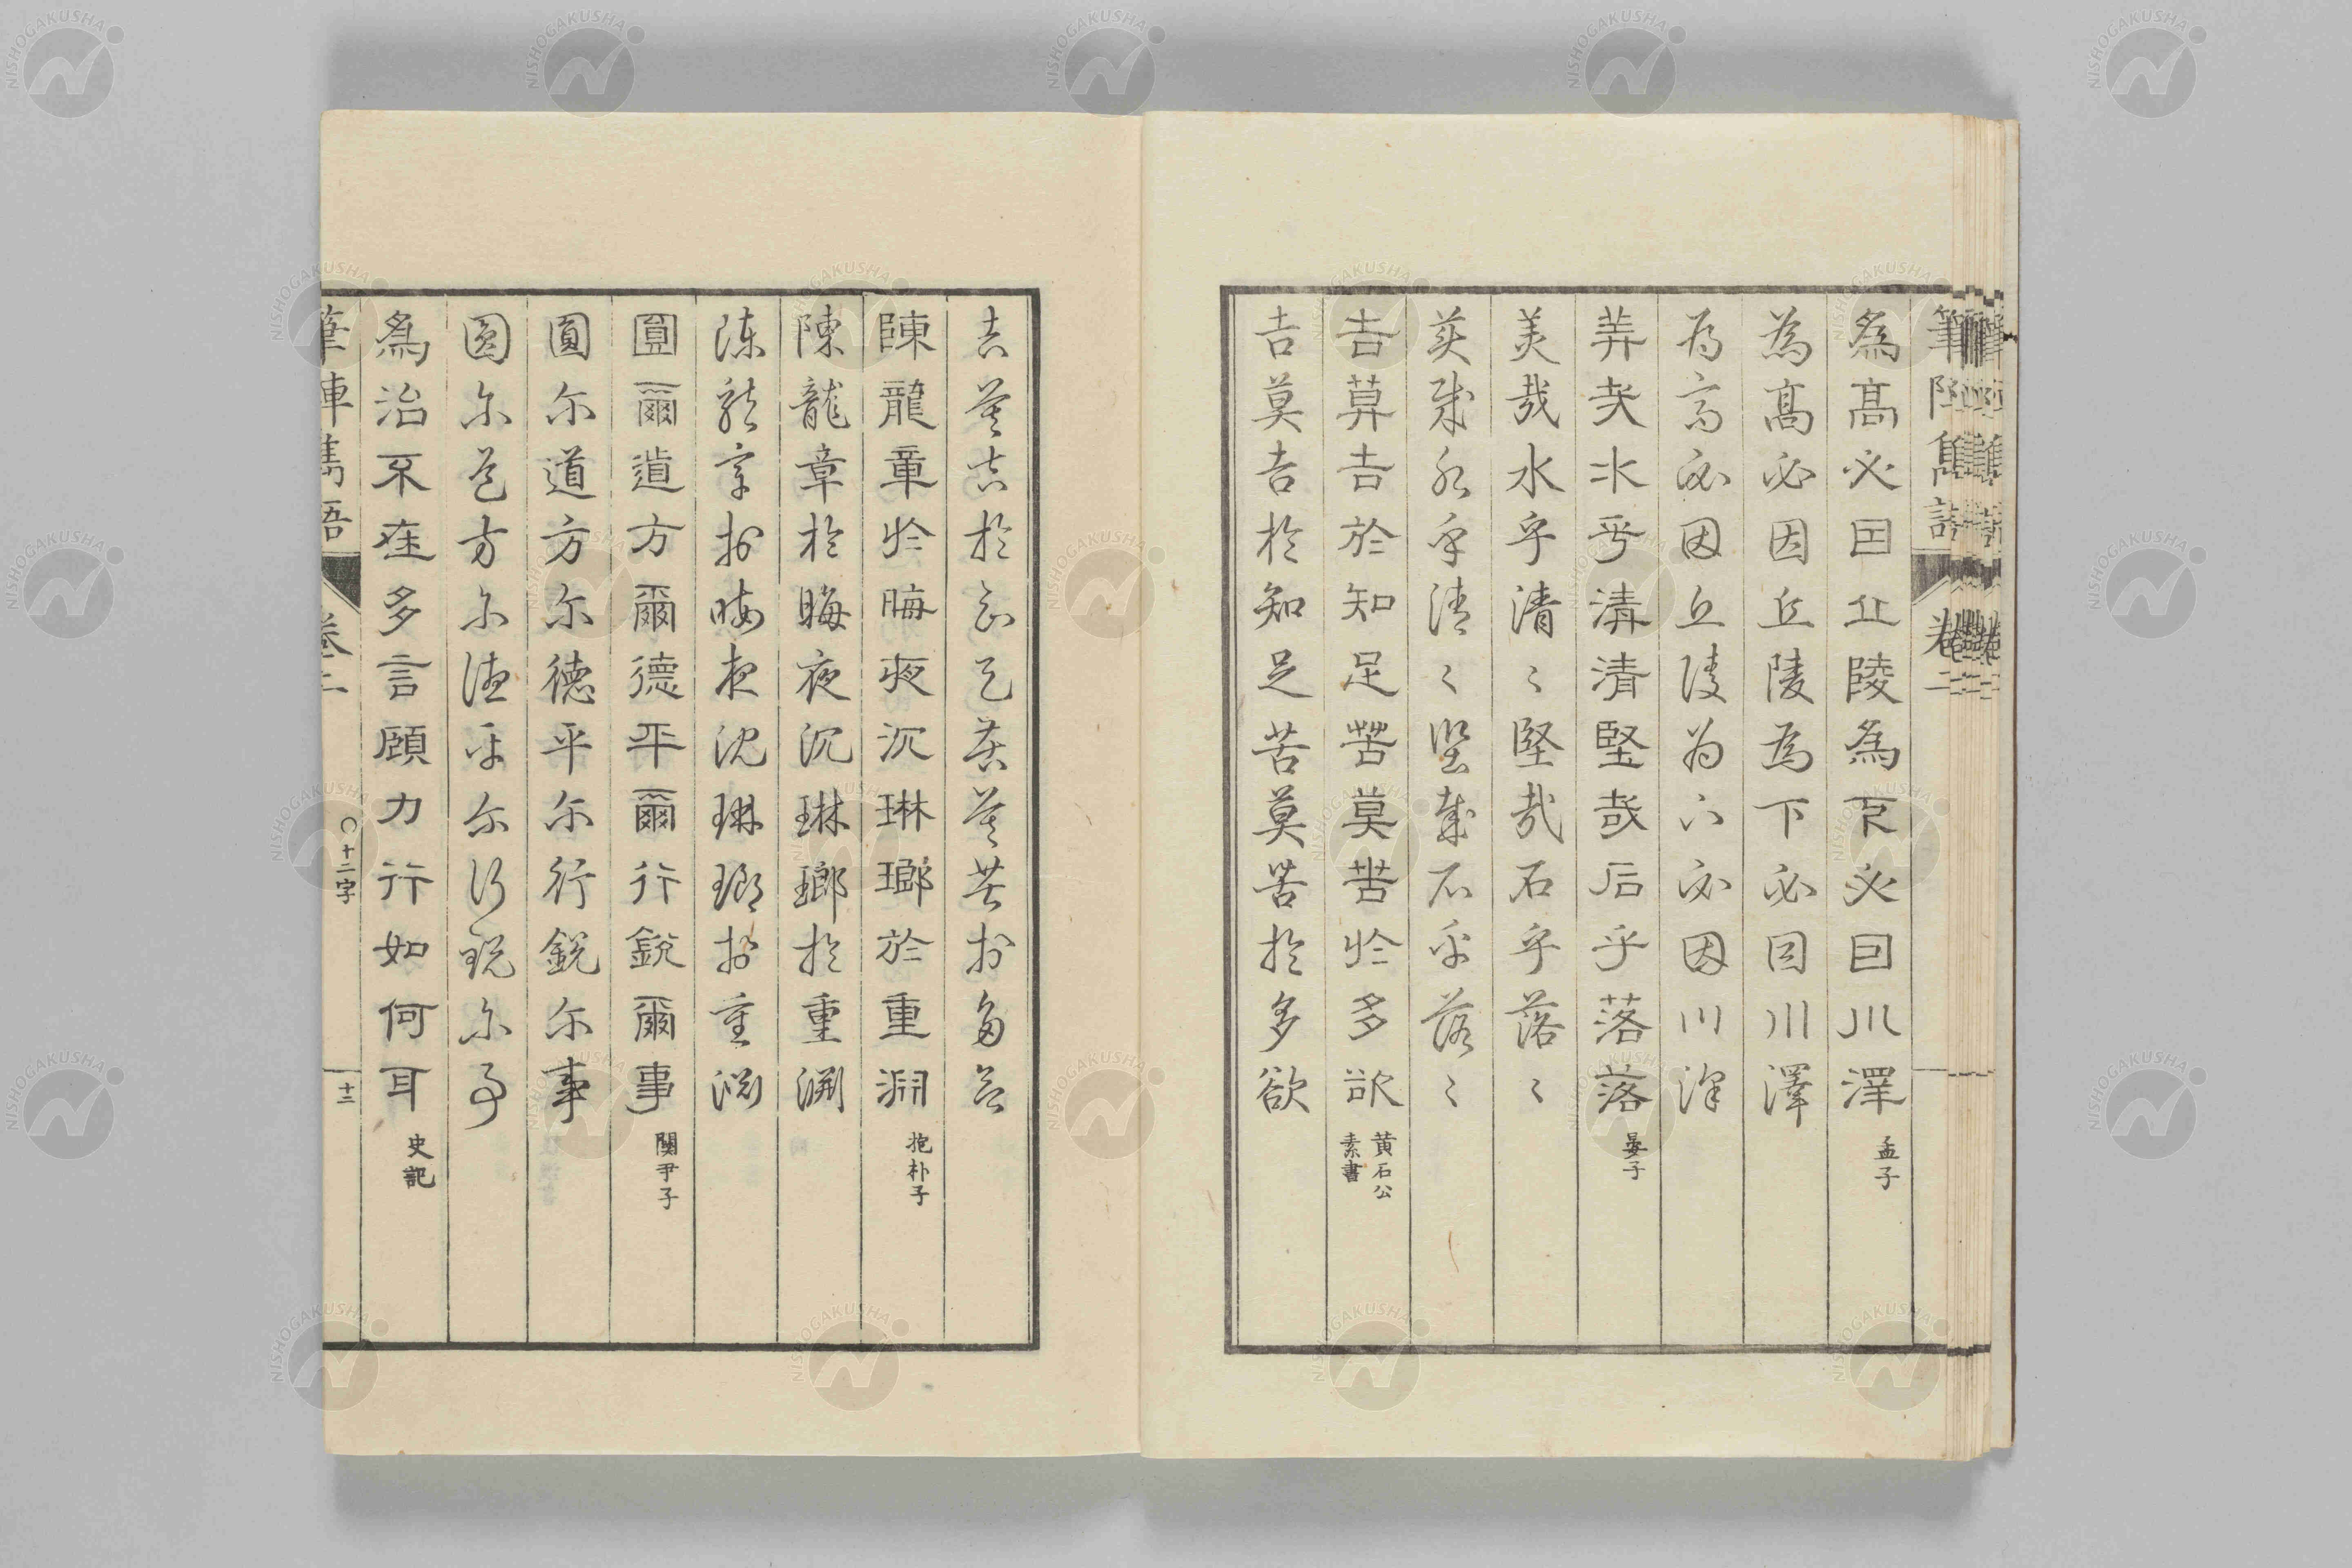 筆陣雋語 卷二
為高必因丘陵為下必因川澤 孟子
為高必因丘陵為下必因川澤
為高必因丘陵為下必因川澤
美哉水乎清清堅哉石乎落落 晏子
美哉水乎清〻堅哉石乎落〻
美哉水乎清〻堅哉石乎落〻
吉莫吉於知足苦莫苦於多欲 黄石公素書
吉莫吉於知足苦莫苦於多欲
吉莫吉於知足苦莫苦於多欲
陳龍章於晦夜沉琳瑯於重淵 抱朴子
陳龍章於晦夜沉琳瑯於重淵
陳龍章於晦夜沈琳瑯於重淵
圓爾道方爾德平爾行銳爾事 關尹子
圓尔道方尔德平尔行銳尔事
圓尔道方尔德平尔行銳尔事
為治不在多言顧力行如何耳 史記
筆陣雋語 卷二 〇十二字 十二
NISHOGAKUSHA